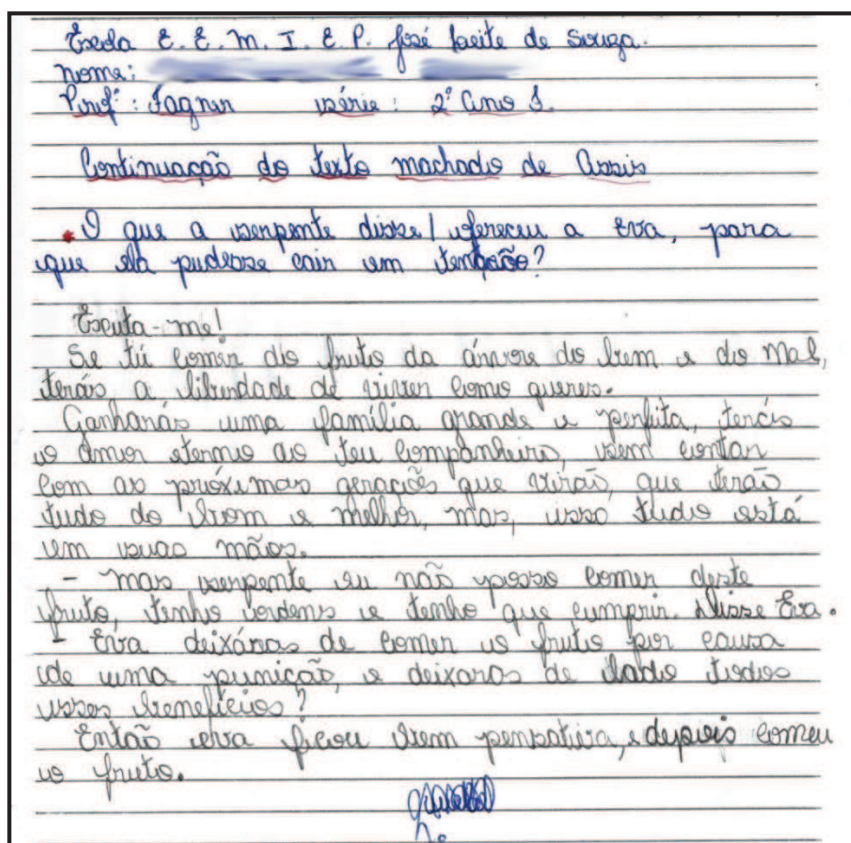 Escola E. E. M. I. E. P. José Leite de Souza.
nome:
Profº: Fagner série: 2º Ano I
Continuação do texto machado de Assis
O que a serpente disse/ofereceu a Eva, para
que ela pudesse cair em tentação?
Escuta-me!
Se tú comer do fruto da árvore do bem e do Mal,
terás a liberdade de viver como queres.
Ganharás uma família grande e perfeita, terás
o amor eterno do teu companheiro, sem contar
com as próximas gerações que virão, que terão
tudo do bom e melhor, mas, isso tudo está
em suas mãos.
- mas serpente eu não posso comer deste
fruto, tenho ordens e tenho que cumprir. Disse Eva.
- Eva deixáras de comer o fruto por causa
de uma punição, e deixaras de lado todos
esses benefícios?
Então eva ficou bem pensativa, e depois comeu
o fruto.